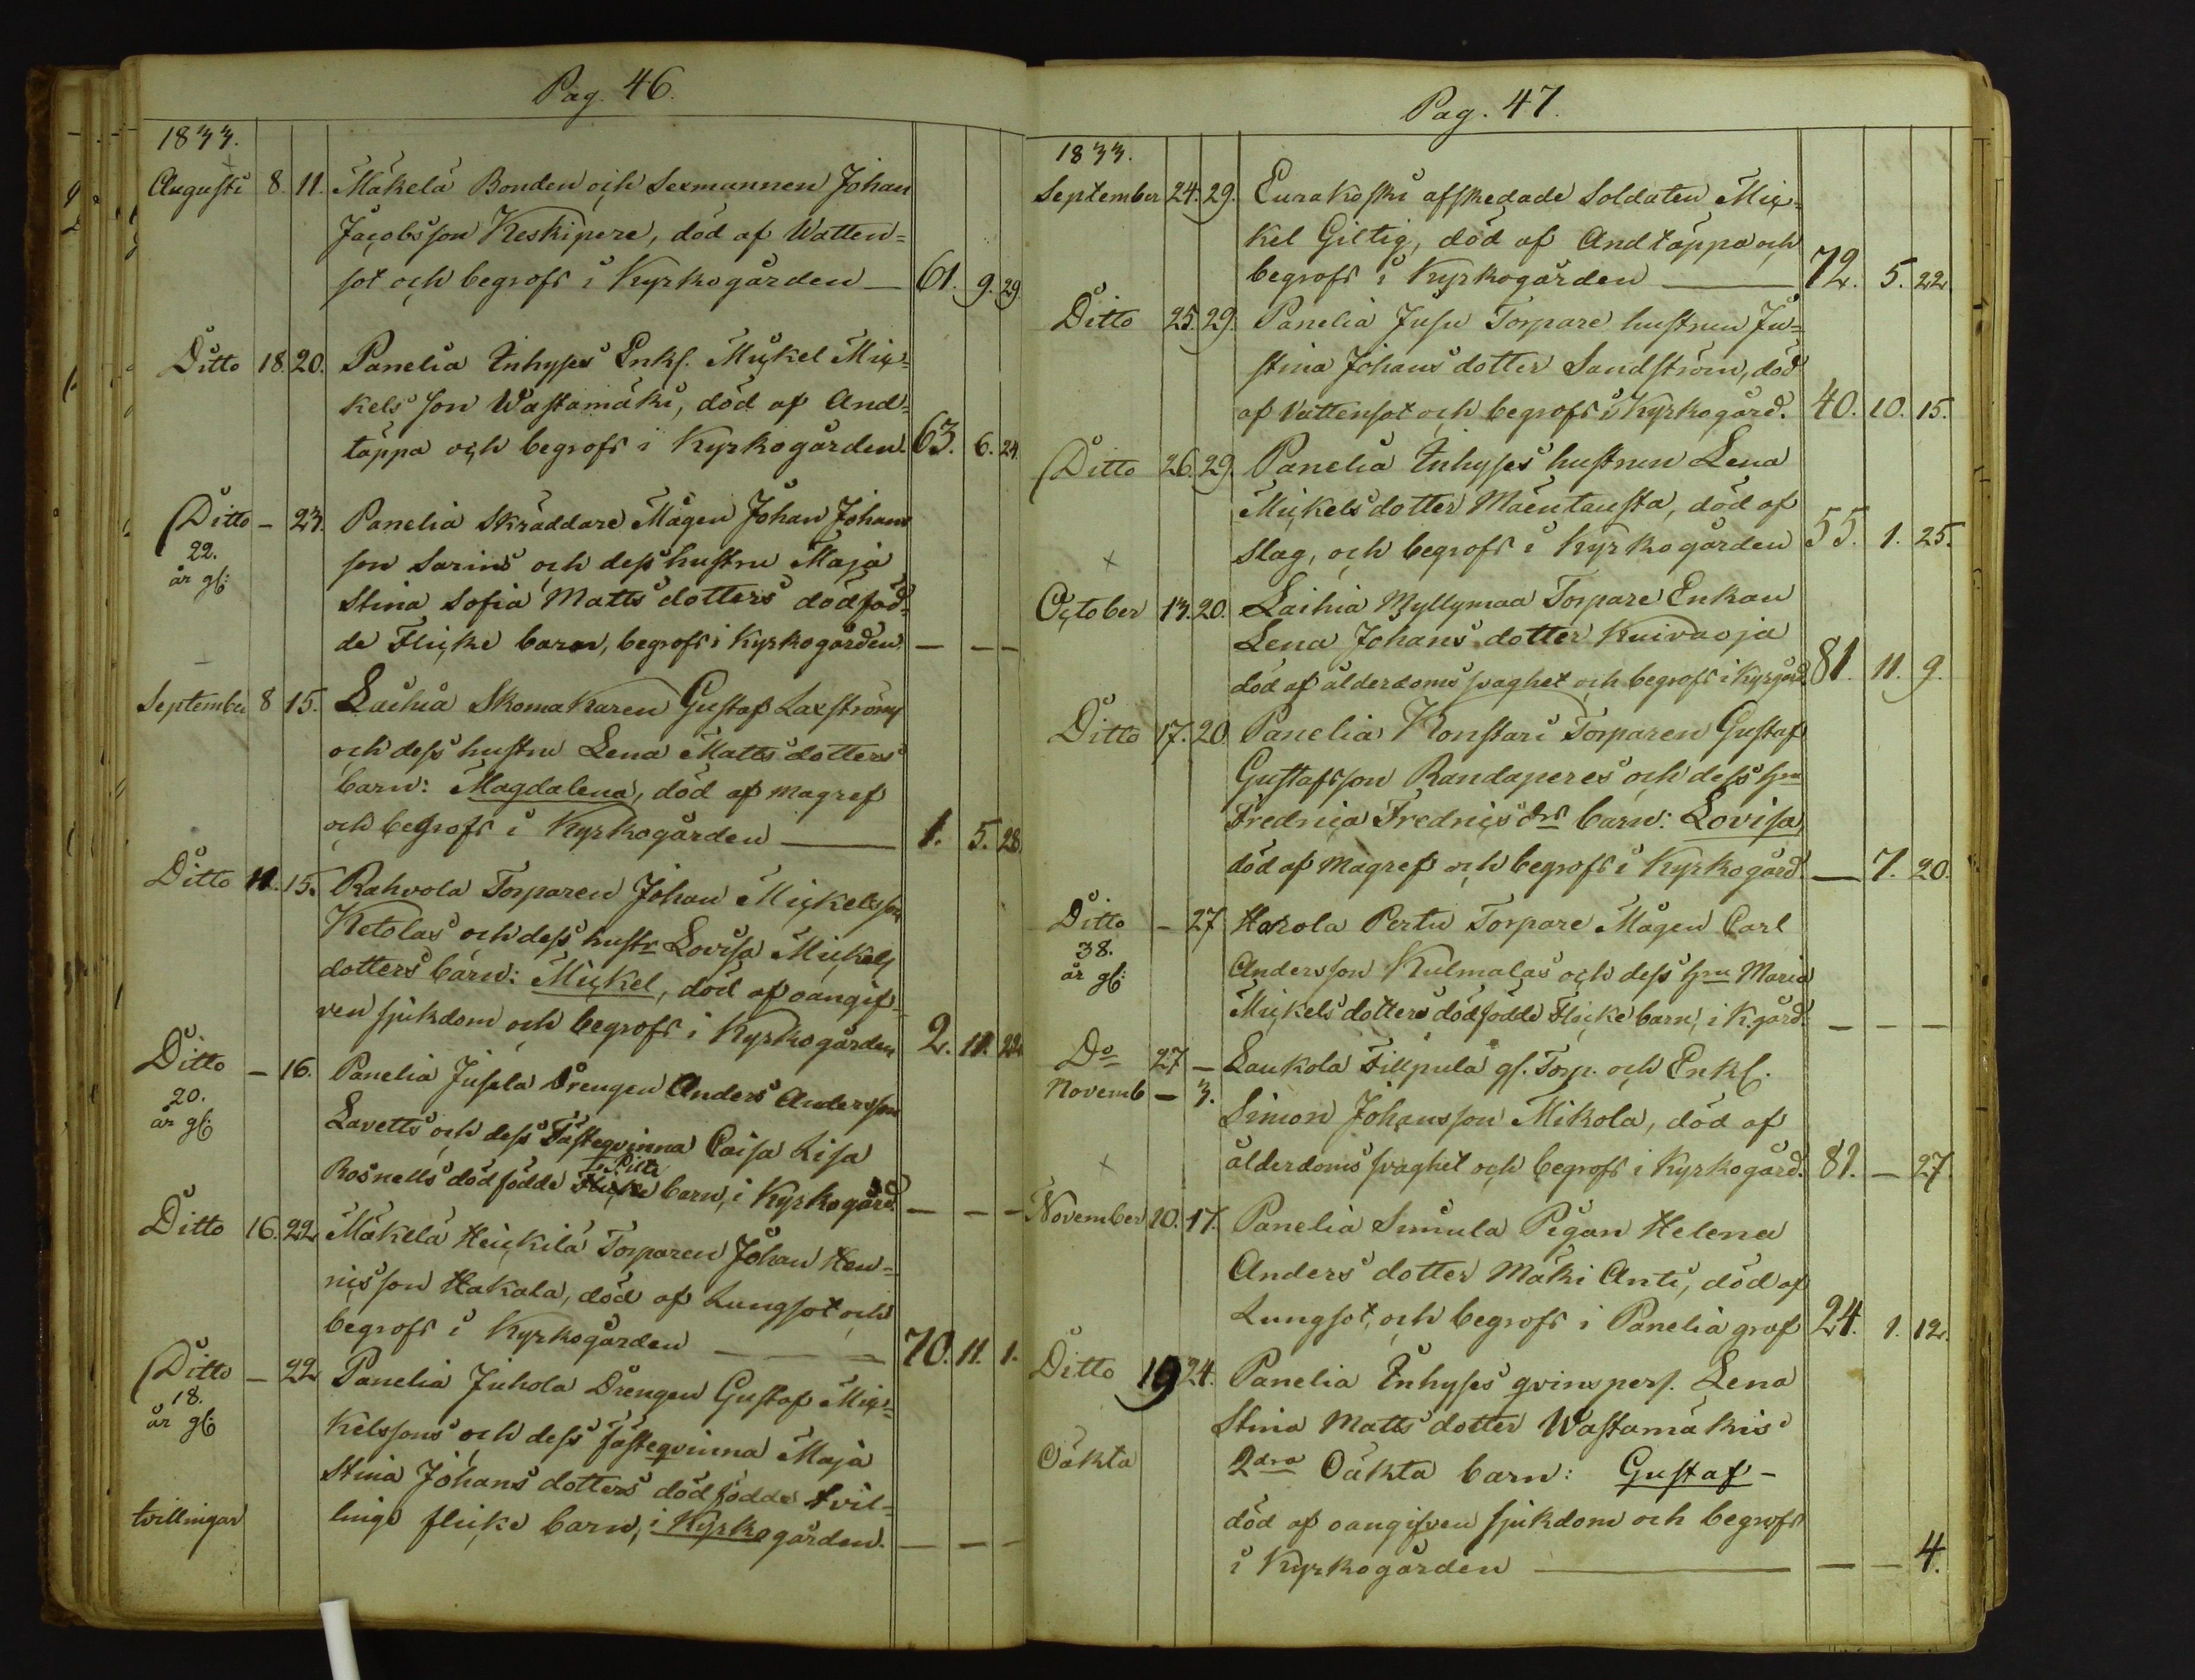 Pag. 46.
1833.
Augusti 8. 11. Mäkelä Bonden och Sexmannen Johan
Jacobsson Keskipere, död af Watten=
sot och begrofs i Kyrkogården — 61. 9. 29
Ditto 18. 20. Panelia Inhyses Enkl. Mickel Mic=
kels son Wastamäki, död af And=
täppa och begrofs i Kyrkogården. 63. 6. 24.
Ditto — 23. Panelia Skräddare Mågen Johan Johans
22. son Sarins och dess hustru Maja
år gl: Stina Sofia Matts dotters dödföd=
de Flicke barn, begrofs i Kyrkogården. — — —
September 8 15. Laihia Skomakaren Gustaf Laxströms
och dess hustru Lena Matts dotters
barn: Magdalena, död af magref
och begrofs i Kyrkogården — 1. 5. 28
Ditto 11. 15. Rahvola Torparen Johan Mickelsson
Ketolas och dess hustr Lovisa Mickels
dotters barn: Mickel, död af oangif=
ven sjukdom och begrofs i Kyrkogården 2. 11. 22
Ditto — 16. Panelia Jusela Drengen Anders Andersson
20. Lavetts och dess Fästeqvinna Caisa Lisa
år gl: Rosnells dödfödde Flicke Pilte barn, i Kyrkogård. — — —
Ditto 16. 22 Mäkelä Heickilä Torparen Johan Hen=
ricsson Hakala, död af Lungsot och
begrofs i Kyrkogården — 70. 11. 1.
Ditto — 22 Panelia Juhola Drengen Gustaf Mic=
18. kelssons och dess fästeqvinna Maja
år gl: Stina Johans dotters dödfödde tvil=
tvillingar lings flicke barn, i Kyrkogården. — — —
Pag. 47.
1833.
September 24. 29. Eurakoski afskedade Soldaten Mic=
kel Giltig, död af Andtäppa och
begrofs i Kyrkogården — 72. 5. 22
Ditto 25. 29. Panelia Jusu Torpare hustrun Ju=
stina Johans dotter Sandström, död
af Vattensot och begrofs i Kyrkogård. 40. 10. 15.
Ditto 26. 29. Panelia Inhyses hustrun Lena
Mickels dotter Mäentausta, död af
Slag, och begrofs i Kyrkogården 55. 1. 25.
October 13. 20. Laihia Myllymaa Torpare Enkan
Lena Johans dotter Kuivaoja
död af ålderdoms svaghet och begrofs i Kyrgård 81. 11. 9.
Ditto 17. 20 Panelia Konstari Torparen Gustaf
Gustafsson Randaperes och dess hru
Fredrica Fredrics drs barn: Lovisa,
död af Magref och begrofs i Kyrkogård. — 7. 20.
Ditto — 27 Harola Pertu Torpare Mågen Carl
38. Andersson Kulmalas och dess hru Maria
år gl: Mickels dotters dödfödde Flicke barn, i K.gård. — — —
Do 27 — Laukola Fillpula gl. Torp. och Enkl.
Novemb — 3. Simon Johansson Mikola, död af
ålderdoms svaghet och begrofs i Kyrkogård. 81. — 27.
November 10. 17. Panelia Simula Pigan Helena
Anders dotter Mäki Anti, död af
Lungsot, och begrofs i Panelia graf 24. 1. 12.
Ditto 19 24. Panelia Inhyses qvinspers. Lena
Stina Matts dotter Wastamäkis
Oäkta 2dra Oäkta barn: Gustaf —
död af oangifven sjukdom och begrofs
i Kyrkogården — — — 4.